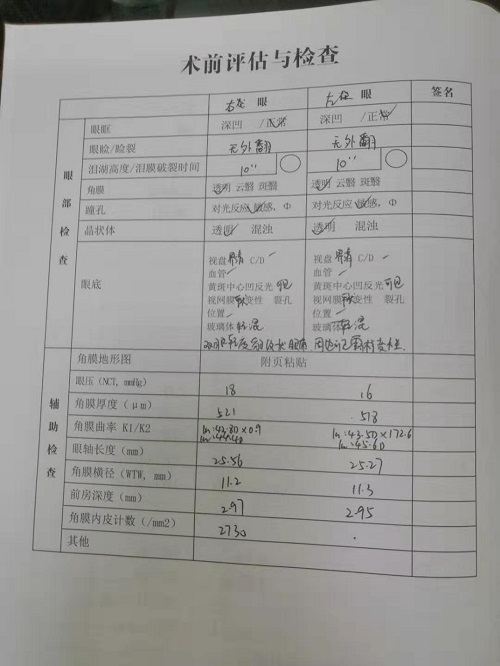 术前评估与检查
右 眼 左 眼 签名
眼部检查
眼眶 深凹 /正常 深凹 /正常
眼睑/睑裂 无外翻 无外翻
泪湖高度/泪膜破裂时间 10'' 10''
角膜 透明 云翳 斑翳 透明 云翳 斑翳
瞳孔 对光反应 敏感,Φ 对光反应 敏感,Φ
晶状体 透明 混浊 透明 混浊
眼底
视盘 界清 C/D 视盘 界清 C/D
血管 血管
黄斑中心凹反光 可见 黄斑中心凹反光 可见
视网膜 变性 裂孔 视网膜 变性 裂孔
位置 位置
玻璃体 轻混 玻璃体 轻混
辅助检查
角膜地形图 附页粘贴
眼压(NCT, mmHg) 18 16
角膜厚度(μm) 521 518
角膜曲率 K1/K2 42.80×0.9 43.50×172.6
44.40 45.60
眼轴长度(mm) 25.56 25.27
角膜横径(WTW, mm) 11.2 11.3
前房深度(mm) 2.97 2.95
角膜内皮计数(/mm2) 2730
其他